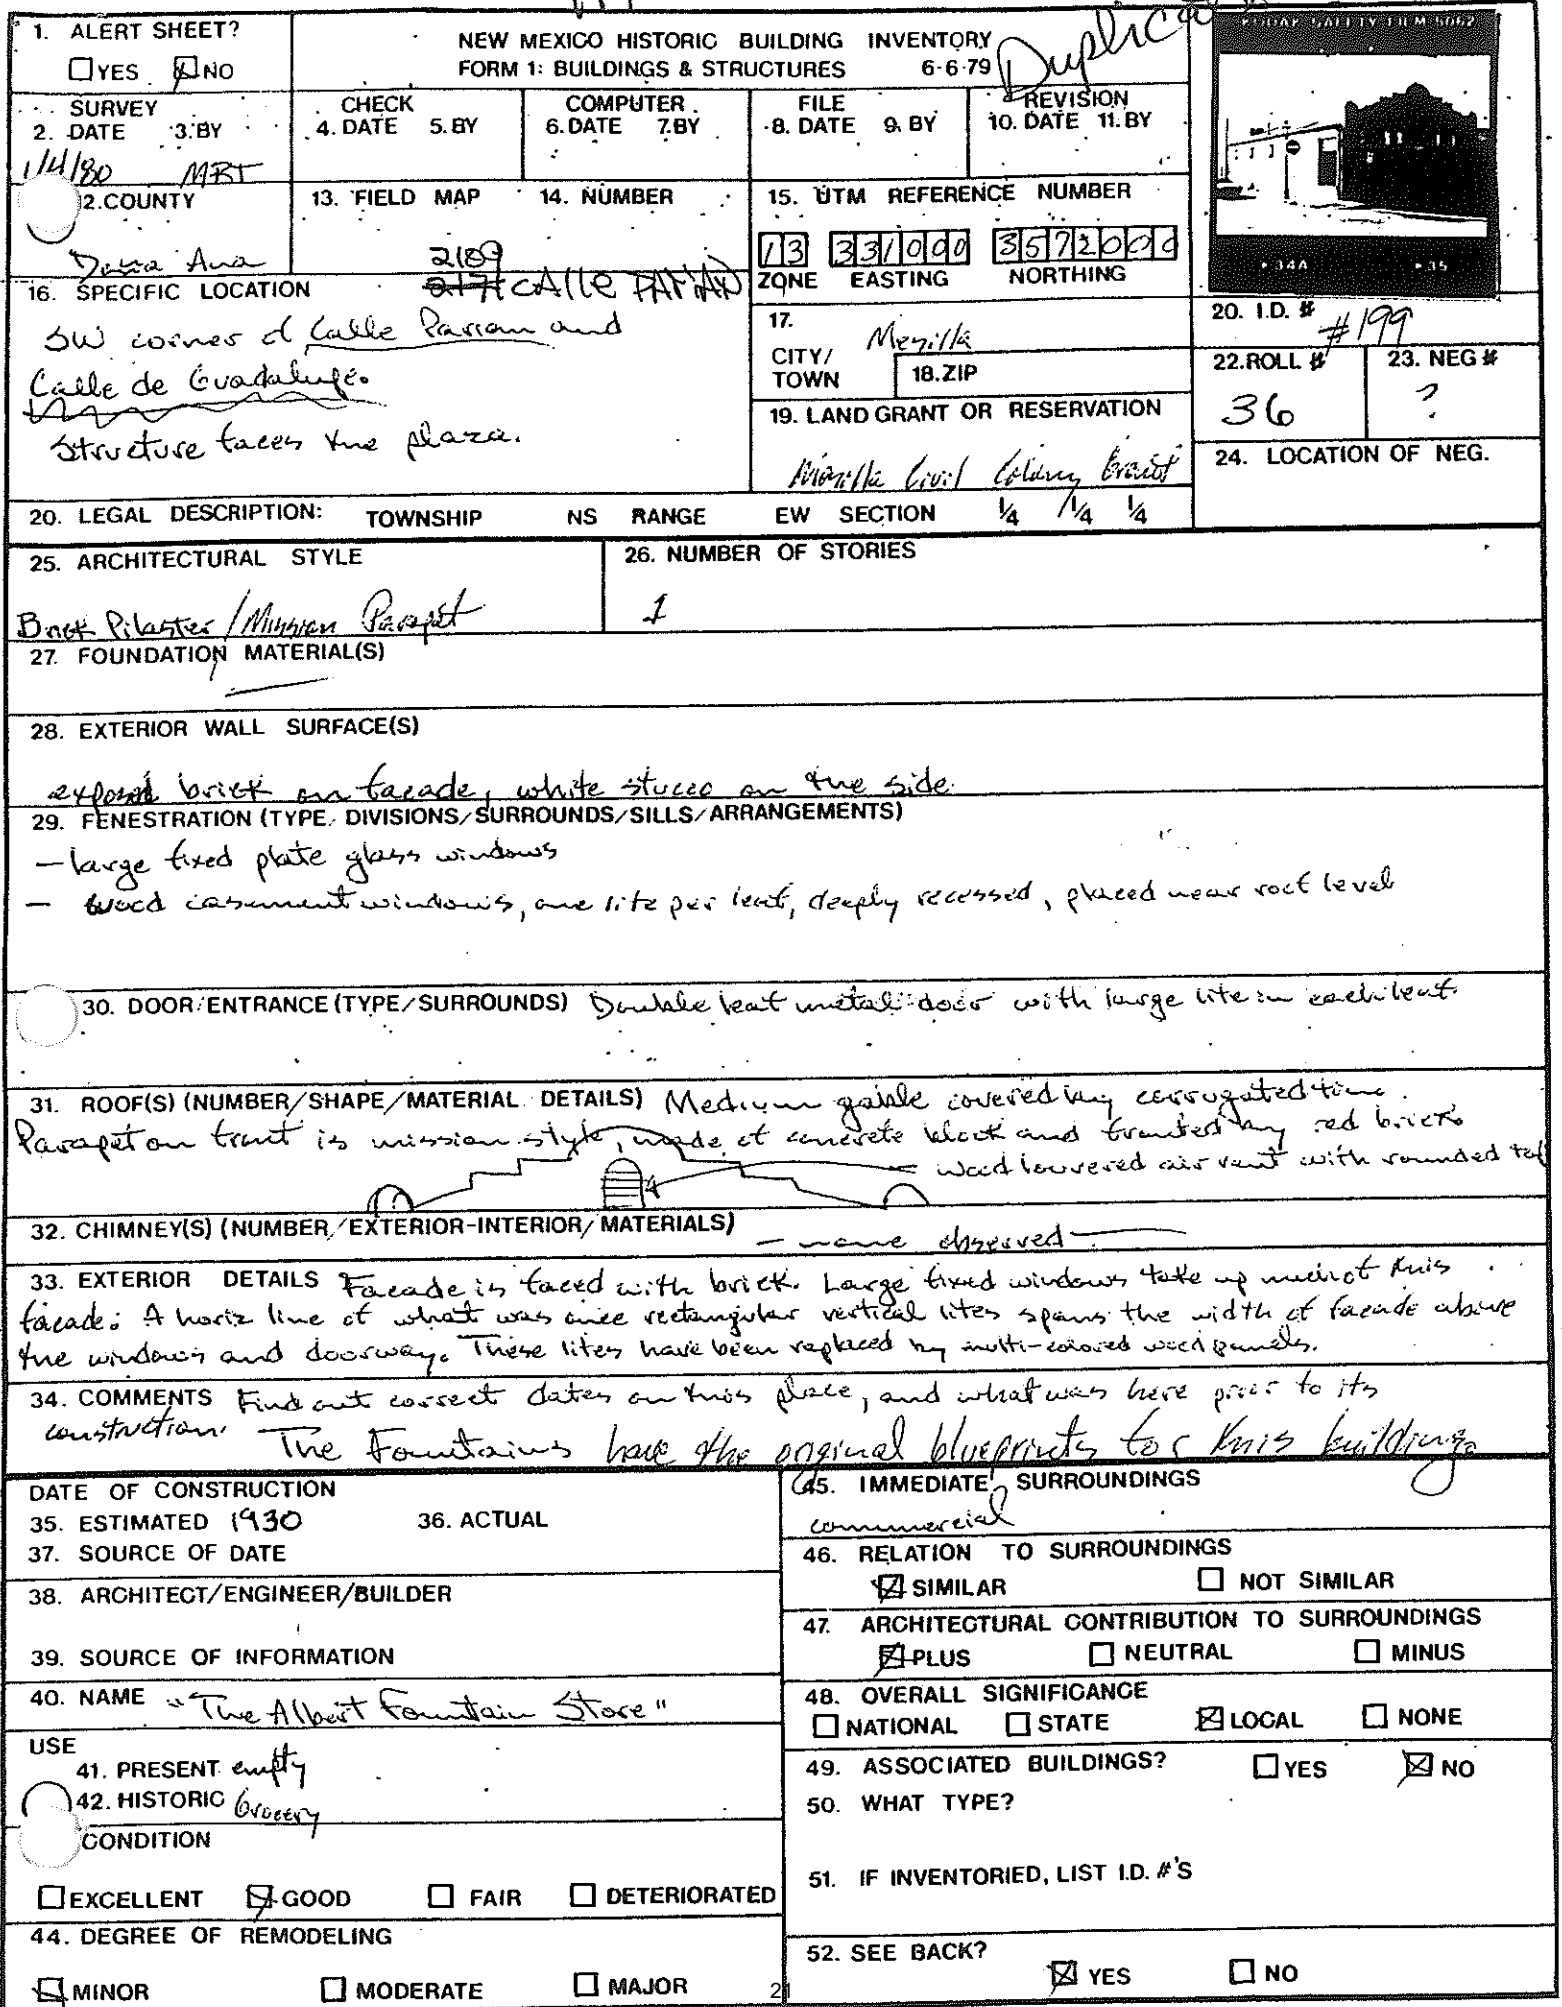 Duplicate
KODAK SAFETY FILM 5062
1. ALERT SHEET?
☐ YES ☒ NO
NEW MEXICO HISTORIC BUILDING INVENTORY
FORM 1: BUILDINGS & STRUCTURES 6-6-79
SURVEY
2. DATE 3. BY
1/4/80 MBT
CHECK
4. DATE 5. BY
COMPUTER
6. DATE 7. BY
FILE
8. DATE 9. BY
REVISION
10. DATE 11. BY
2. COUNTY
Doña Ana
13. FIELD MAP
14. NUMBER
15. UTM REFERENCE NUMBER
13 331000 3572000
ZONE EASTING NORTHING
34A 35
16. SPECIFIC LOCATION
2189
2171 CALLE PARIAN
SW corner of Calle Parian and
Calle de Guadalupe.
Structure faces the plaza.
17.
CITY/
TOWN
Mesilla
18. ZIP
19. LAND GRANT OR RESERVATION
Mesilla Civil Colony Grant
20. I.D. #
#199
22. ROLL #
36
23. NEG #
?
24. LOCATION OF NEG.
20. LEGAL DESCRIPTION: TOWNSHIP NS RANGE EW SECTION ¼ /¼ ¼
25. ARCHITECTURAL STYLE
Brick Pilaster / Mission Parapet
26. NUMBER OF STORIES
1
27. FOUNDATION MATERIAL(S)
28. EXTERIOR WALL SURFACE(S)
exposed brick on facade, white stucco on the side.
29. FENESTRATION (TYPE/DIVISIONS/SURROUNDS/SILLS/ARRANGEMENTS)
— large fixed plate glass windows
— wood casement windows, one lite per leaf, deeply recessed, placed near roof level
30. DOOR/ENTRANCE (TYPE/SURROUNDS) Double leaf metal door with large lite in each leaf.
31. ROOF(S) (NUMBER/SHAPE/MATERIAL DETAILS) Medium gable covered by corrugated tin.
Parapet on front is mission style, made of concrete block and fronted by red brick
wood louvered air vent with rounded top
32. CHIMNEY(S) (NUMBER/EXTERIOR-INTERIOR/MATERIALS) — none observed —
33. EXTERIOR DETAILS Facade is faced with brick. Large fixed windows take up much of this
facade. A horiz line of what was once rectangular vertical lites spans the width of facade above
the windows and doorway. These lites have been replaced by multi-colored wood panels.
34. COMMENTS Find out correct dates on this place, and what was here prior to its
construction. The Fountains have the original blueprints for this building.
DATE OF CONSTRUCTION
35. ESTIMATED 1930 36. ACTUAL
37. SOURCE OF DATE
38. ARCHITECT/ENGINEER/BUILDER
39. SOURCE OF INFORMATION
40. NAME "The Albert Fountain Store"
USE
41. PRESENT empty
42. HISTORIC Grocery
CONDITION
☐ EXCELLENT ☒ GOOD ☐ FAIR ☐ DETERIORATED
44. DEGREE OF REMODELING
☒ MINOR ☐ MODERATE ☐ MAJOR
45. IMMEDIATE SURROUNDINGS
commercial
46. RELATION TO SURROUNDINGS
☒ SIMILAR ☐ NOT SIMILAR
47. ARCHITECTURAL CONTRIBUTION TO SURROUNDINGS
☒ PLUS ☐ NEUTRAL ☐ MINUS
48. OVERALL SIGNIFICANCE
☐ NATIONAL ☐ STATE ☒ LOCAL ☐ NONE
49. ASSOCIATED BUILDINGS? ☐ YES ☒ NO
50. WHAT TYPE?
51. IF INVENTORIED, LIST I.D. #'S
52. SEE BACK?
☒ YES ☐ NO